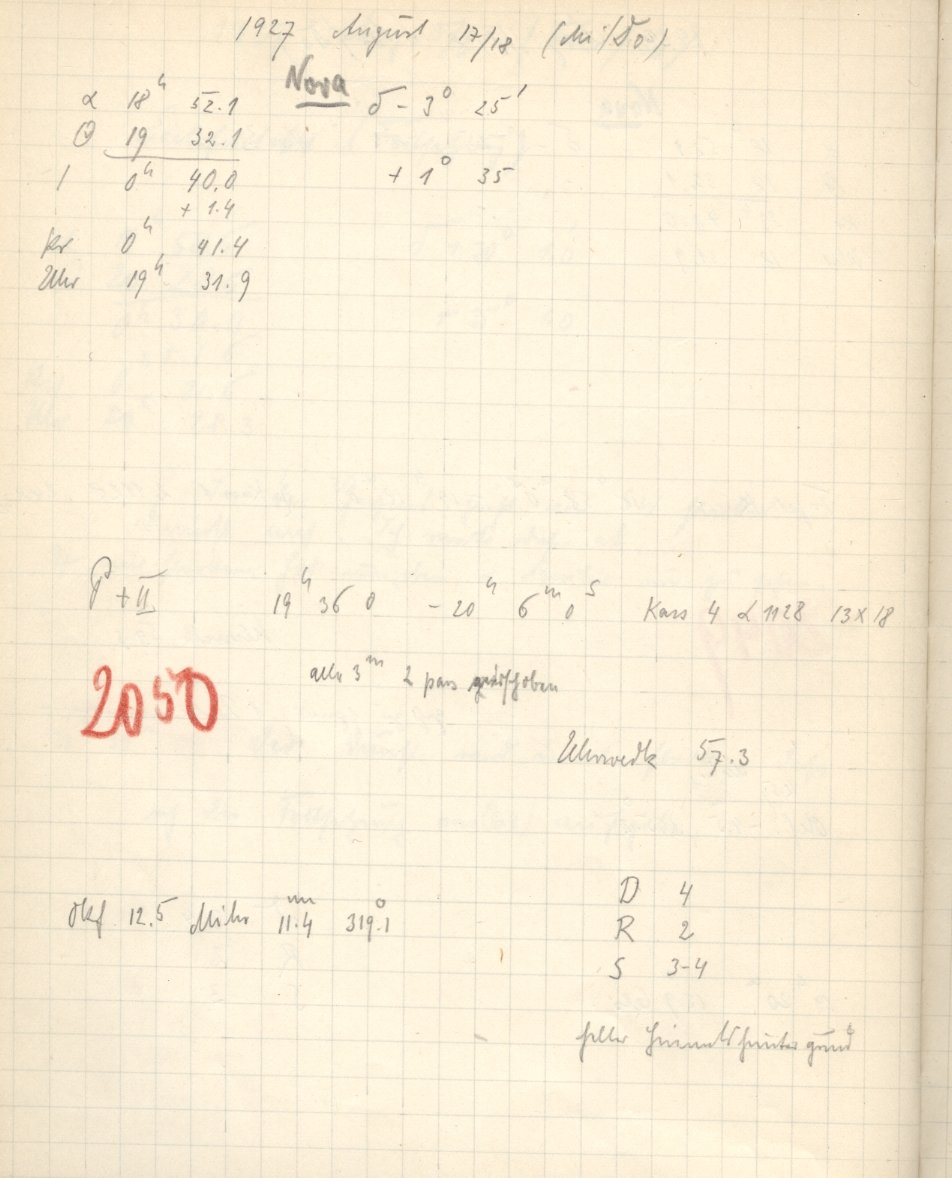 1927 August 17/18 (Mi/Do)
Nova
α 18h 52.1 δ - 3° 25'
Θ 19 32.1
0h 40.0 + 1° 35
+ 1.4
kr 0h 41.4
Uhr 19h 31.9
P + II 19h 36 0 - 20h 6m 0s Kass 4 α 1128 13 X 18
alle 3m 2 pars verschoben
2050
57.3
Okf 12.5 Mikr 11.4 319.1°
D 4
R 2
S 3-4
heller Himmelshintergrund